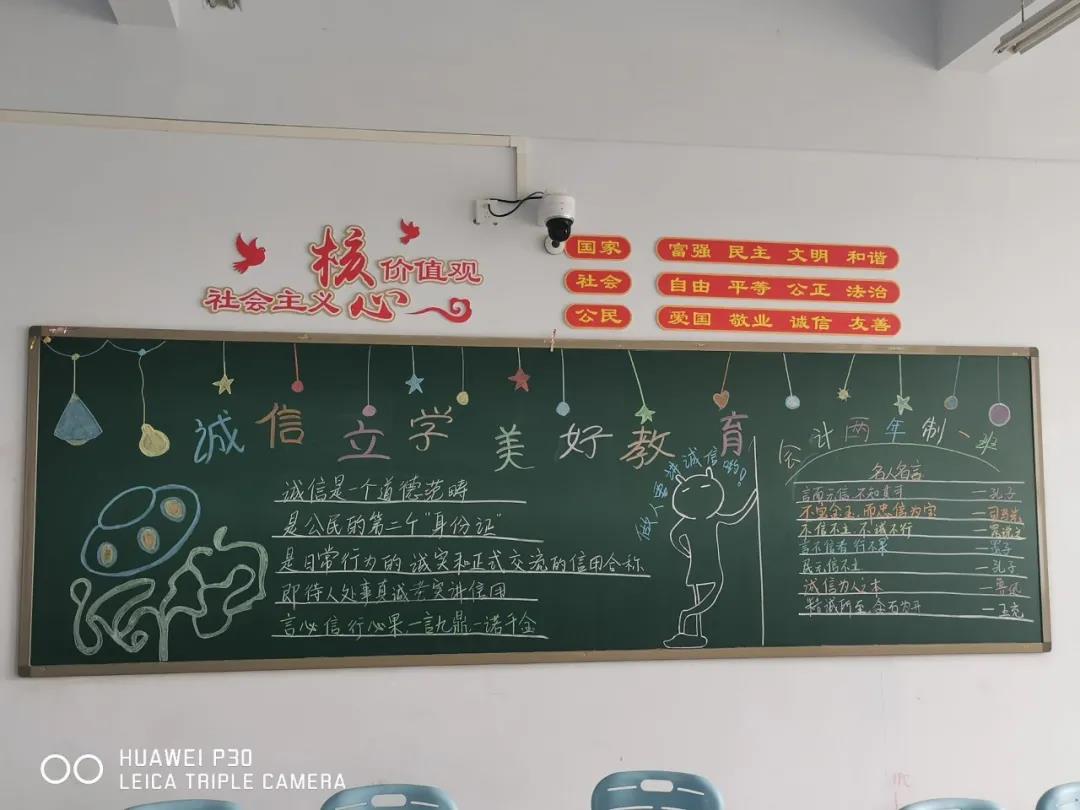 社会主义核心价值观
国家 富强 民主 文明 和谐
社会 自由 平等 公正 法治
公民 爱国 敬业 诚信 友善
诚信立学美好教育
诚信是一个道德范畴
是公民的第二个"身份证"
是日常行为的诚实和正式交流的信用合称
即待人处事真诚老实讲信用
言必信行必果,一言九鼎,一诺千金
做人要讲诚信哟!
会计两年制一班
名人名言
言而无信,不知其可 —孔子
不宝金玉,而忠信为宝
不信不立,不诚不行
言不信者 行不果 —墨子
民无信不立 —孔子
诚信为人之本 —鲁迅
精诚所至,金石为开 —王充
HUAWEI P30
LEICA TRIPLE CAMERA